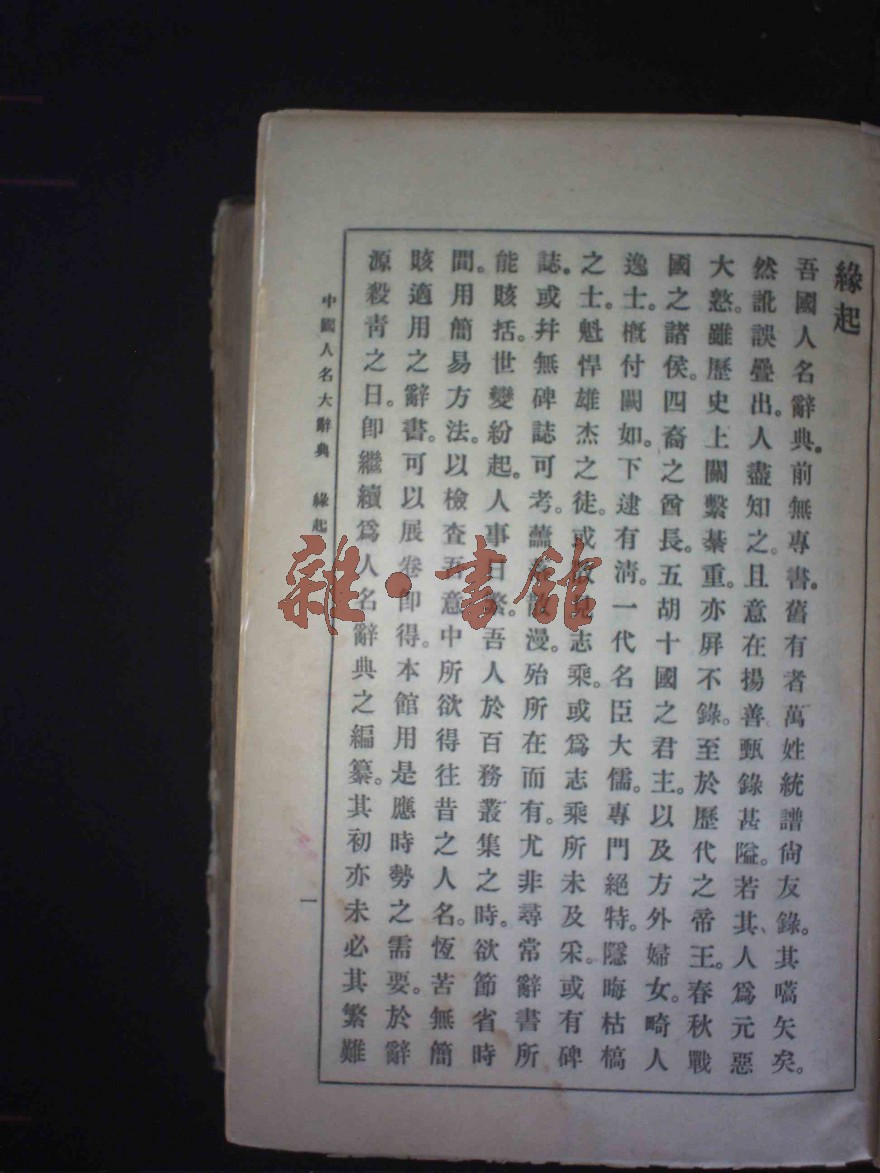 緣起
吾國人名辭典。前無專書。舊有者萬姓統譜尙友錄。其嚆矢矣。
然訛誤疊出。人盡知之。且意在揚善、甄錄甚隘。若其、人爲元惡
大憝。雖歷史上關繫綦重。亦屏不錄。至於歷代之帝王。春秋戰
國之諸侯。四裔之酋長。五胡十國之君主。以及方外婦女。畸人
逸士。槪付闕如。下逮有淸。一代名臣大儒。專門絕特。隱晦枯槁
之士。魁悍雄杰之徒。或散見志乘。或爲志乘所未及采。或有碑
誌。或幷無碑誌可考。漫。殆所在而有。尤非尋常辭書所
能賅括。世變紛起。人事日繁。吾人於百務叢集之時。欲節省時
間。用簡易方法。以檢查吾意中所欲得往昔之人名。恆苦無簡
賅適用之辭書。可以展卷卽得。本館用是應時勢之需要。於辭
源殺靑之日。卽繼續爲人名辭典之編纂。其初亦未必其繁難
中國人名大辭典 緣起
一
雜·書館